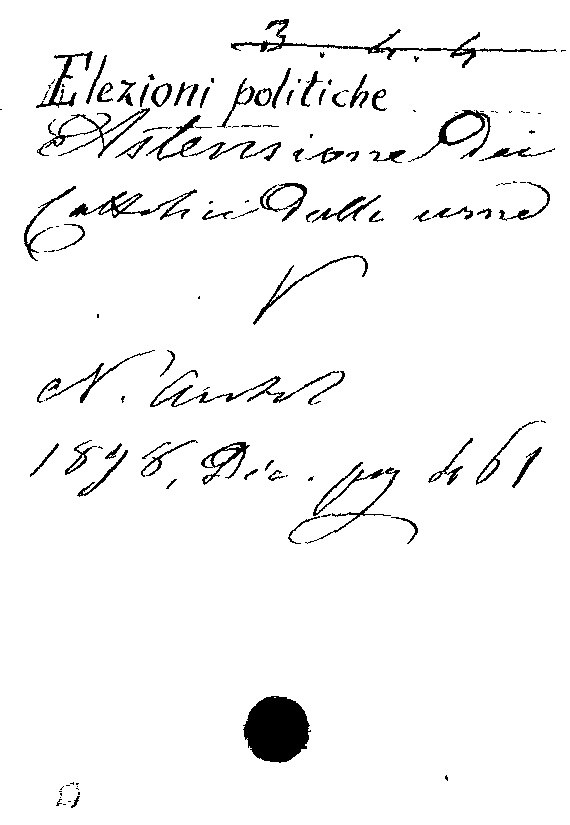 3.4.4
Elezioni politiche
Astensione dei
Cattolici dalle urne
V
N. Antol
1898, Dic. pag 461